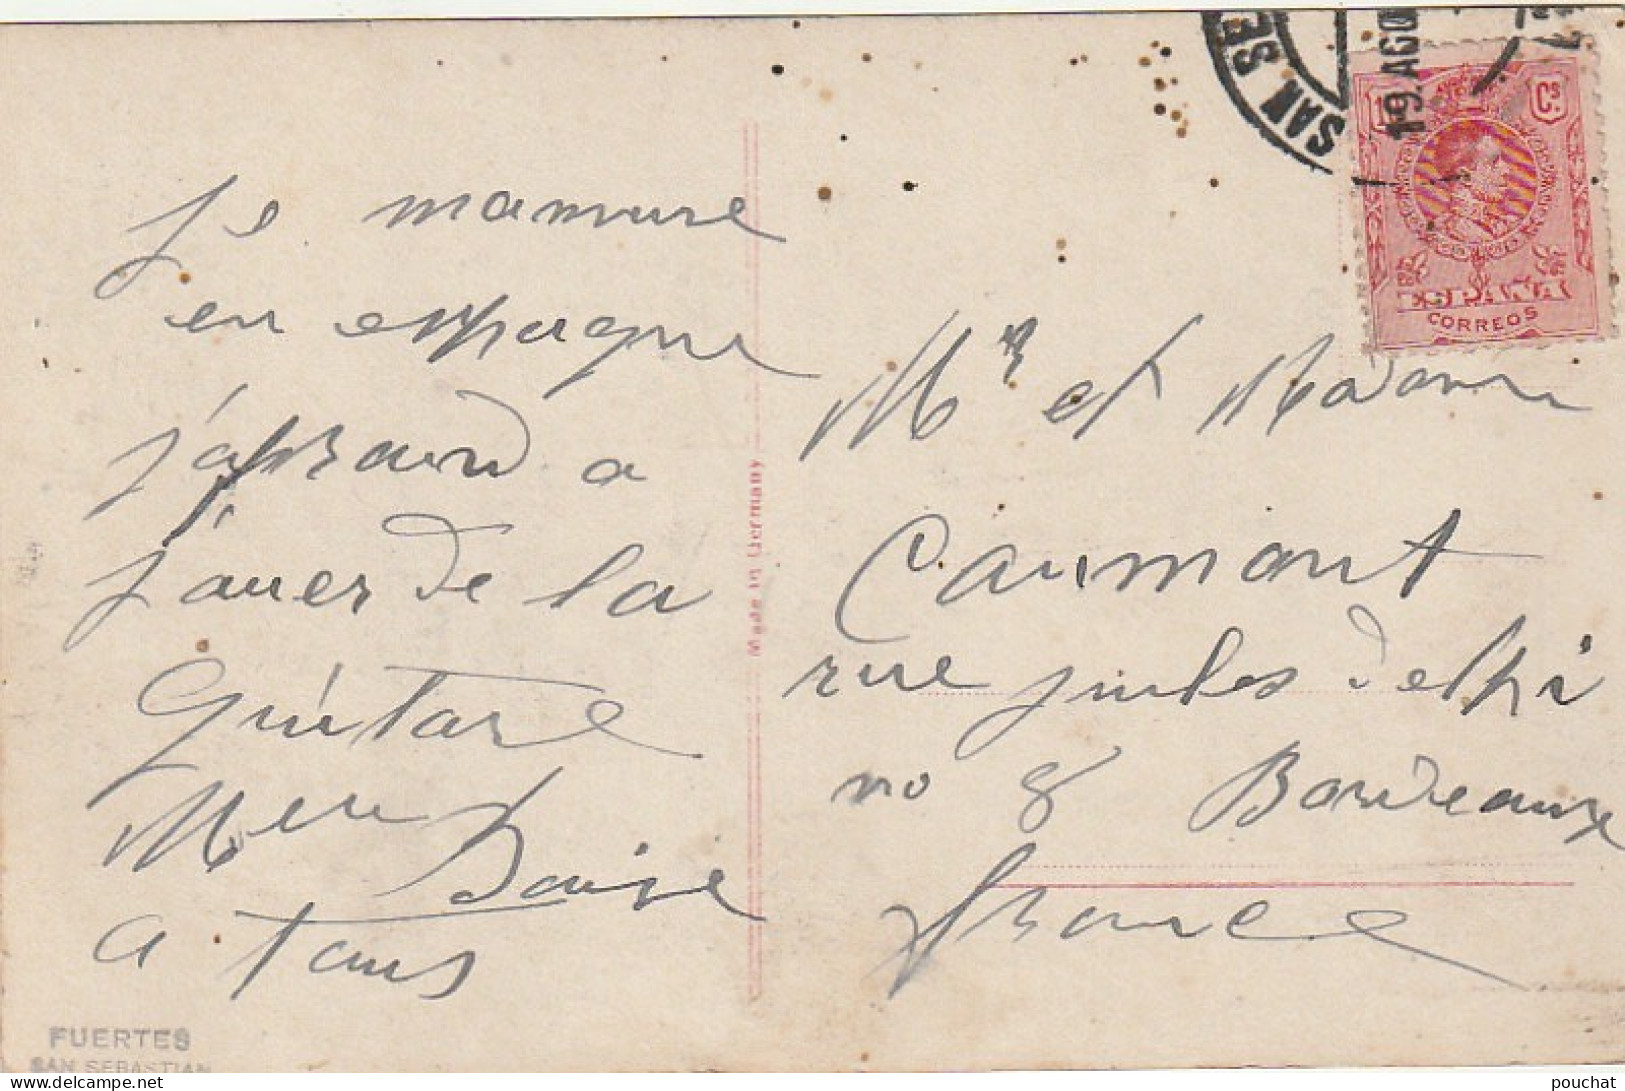 je mamuse
en espagne
j'aprand a
jouer de la
guitare
Merci
Baise
a tous
FUERTES
SAN SEBASTIAN
Made in Germany
SAN SE
19.AGO
Cs
ESPAÑA
CORREOS
Mr et Madame
Caumont
rue jules delpi
no 8 Bordeaux
france
pouchat